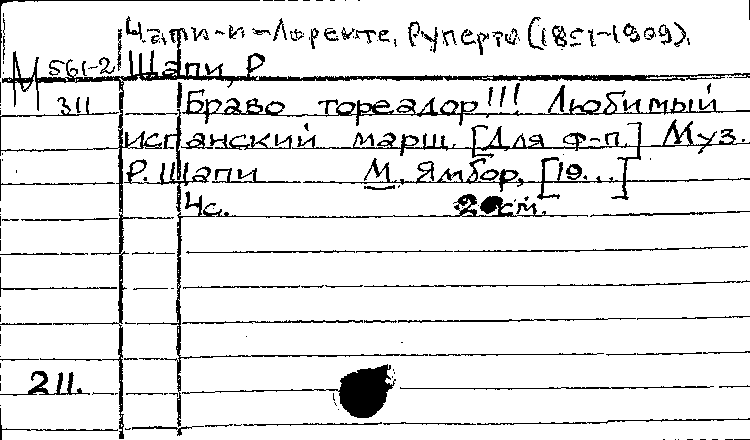 Чапи-и-Лоренте, Руперто (1851-1909).
М 561-2 Шапи, Р
311 Браво тореадор!!! Любимый
испанский марш. [Для ф-п.] Муз.
Р. Шапи М., Ямбор, [19...]
4с. см.
211.